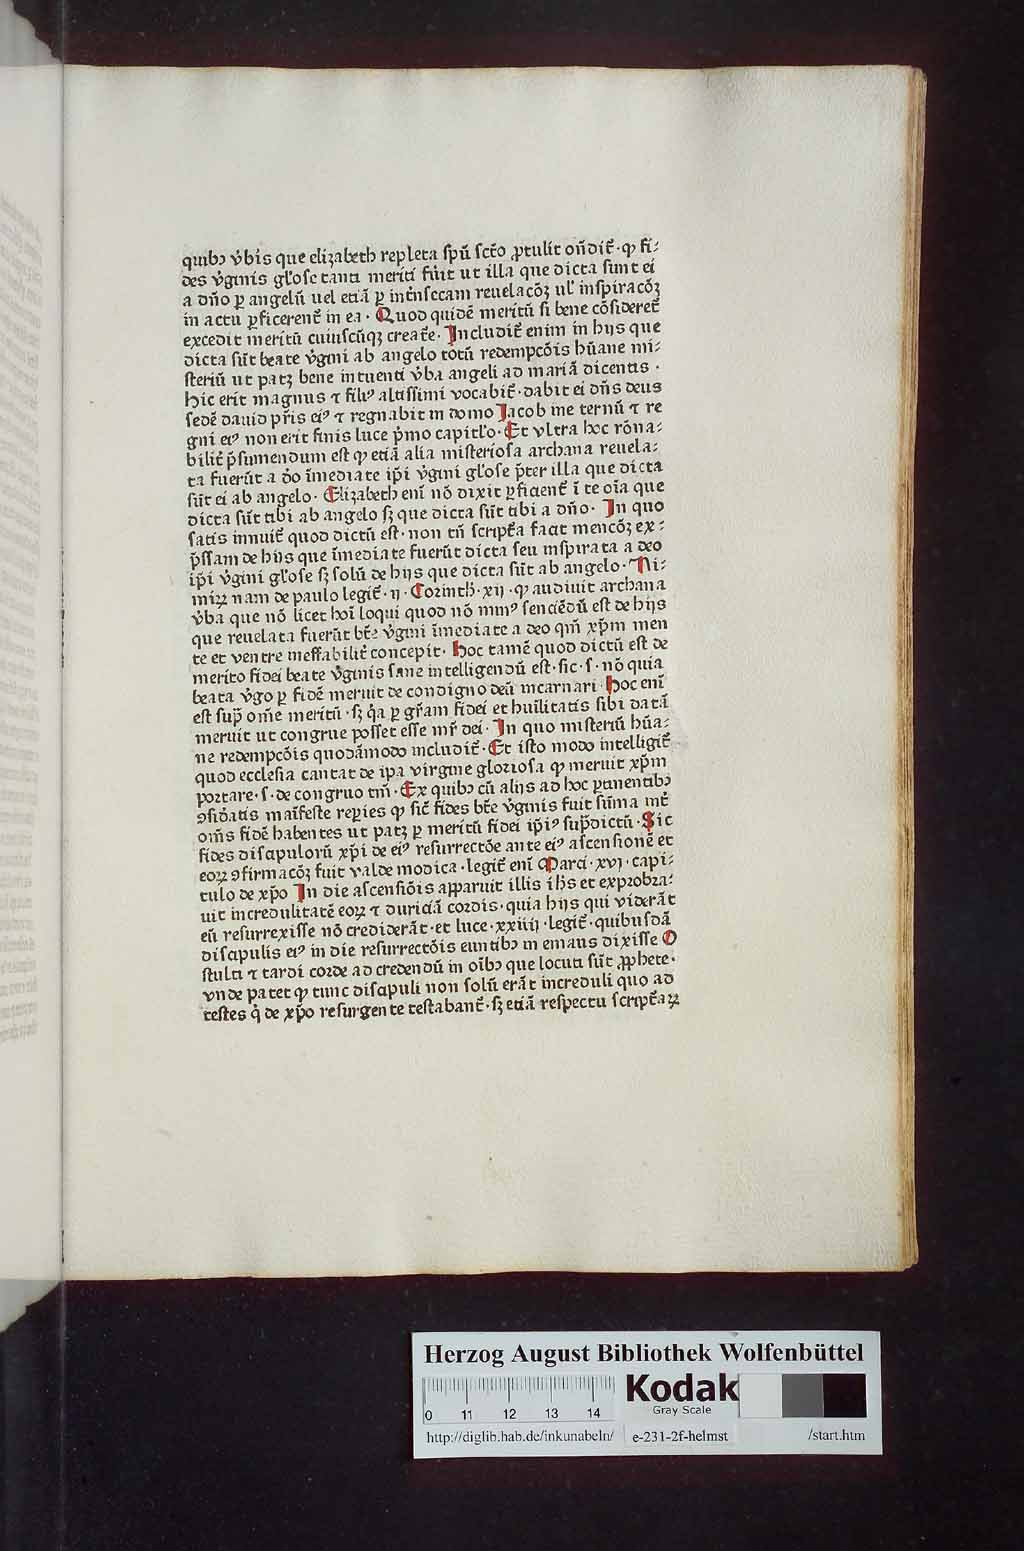 quibꝫ v̓bis que elizabeth repleta spū scto ꝓtulit oñdit̄ · ꝙ fi⸗
des v̓ginis gl'ose tanti meriti fuit ut illa que dicta sunt ei
a dño ꝑ angelū uel etiā ꝑ int̓nsecam reuelacōꝫ ul' inspiracōꝫ
in actu ꝑficerent̄ in ea · Quod quidē meritū si bene cōsideret̄
excedit meritū cuiuscūqꝫ creat̄e · Includit̄ enim in hijs que
dicta sūt beate v̓gini ab angelo totū redempcōis hūane mi⸗
steriū ut patꝫ bene intuenti v̓ba angeli ad mariā dicentis ·
hic erit magnus ⁊ filiꝰ altissimi vocabit̄ · dabit ei dñs deus
sedē dauid pr̄is eiꝰ ⁊ regnabit in domo Jacob ine ternū ⁊ re
gni eiꝰ non erit finis luce p̓mo capitl'o · Et vltra hoc rōna⸗
bilit̄ p̄sumendum est ꝙ etiā alia misteriosa archana reuela⸗
ta fuerūt a d̓o īmediate ip̄i v̓gini gl'ose p̄ter illa que dicta
sūt ei ab angelo · Elizabeth enī nō dixit ꝑficient̄ ī te oīa que
dicta sūt tibi ab angelo sꝫ que dicta sūt tibi a dño · In quo
satis innuit̄ quod dictū est · non tñ script̄a facit mencōꝫ ex⸗
p̄ssam de hijs que īmediate fuerūt dicta seu inspirata a deo
ip̄i v̓gini gl'ose sꝫ solū de hijs que dicta sūt ab angelo · Ni⸗
miꝝ nam de paulo legit̄ · ij · Corinth · xij · ꝙ audiuit archana
v̓ba que nō licet hoī loqui quod nō minꝰ senciēdū est de hijs
que reuelata fuerūt bt̄e v̓gini īmediate a deo qñ xp̄m men
te et ventre ineffabilit̄ concepit · Hoc tamē quod dictū est de
merito fidei beate v̓ginis sane intelligendū est · sic · s · nō quia
beata v̓go ꝑ fidē meruit de condigno deū incarnari · Hoc enī
est sup̄ om̄e meritū · sꝫ q̓a ꝑ gr̄am fidei et huīlitatis sibi datā
meruit ut congrue posset esse mr̄ dei · In quo misteriū hūa⸗
ne redempcōis quodāmodo includit̄ · Et isto modo intelligit̄
quod ecclesia cantat de ip̄a virgine gloriosa ꝙ meruit xp̄m
portare · s · de congruo tm̄ · Ex quibꝫ cū alijs ad hoc ꝑtinentibꝫ
ꝯsid̓atis maīfeste reꝑies ꝙ sic̄ fides bt̄e v̓ginis fuit sūma int̄
om̄s fidē habentes ut patꝫ ꝑ meritū fidei ip̄iꝰ sup̄dictū · Sic
fides discipulorū xp̄i de eiꝰ resurrectōe ante eiꝰ ascensionē et
eoꝝ ꝯfirmacōꝫ fuit valde modica · legit̄ enī Marci · xvj · capi⸗
tulo de xp̄o In die ascensiōis apparuit illis ihs et exprobra⸗
uit incredulitatē eoꝝ ⁊ duriciā cordis · quia hijs qui viderāt
eū resurrexisse nō crediderāt · et luce · xxiiij · legit̄ · quibusdā
discipulis eiꝰ in die resurrectōis euntibꝫ in emaus dixisse O
stulti ⁊ tardi corde ad credendū in oībꝫ que locuti sūt ꝓphete ·
vnde patet ꝙ tunc discipuli non solū erāt increduli quo ad
testes q̓ de xp̄o resurgente testabant̄ · sꝫ etiā respectu script̄aꝝ
Herzog August Bibliothek Wolfenbüttel
Kodak
Gray Scale
0 11 12 13 14
http://diglib.hab.de/inkunabeln/ e-231-2f-helmst /start.htm